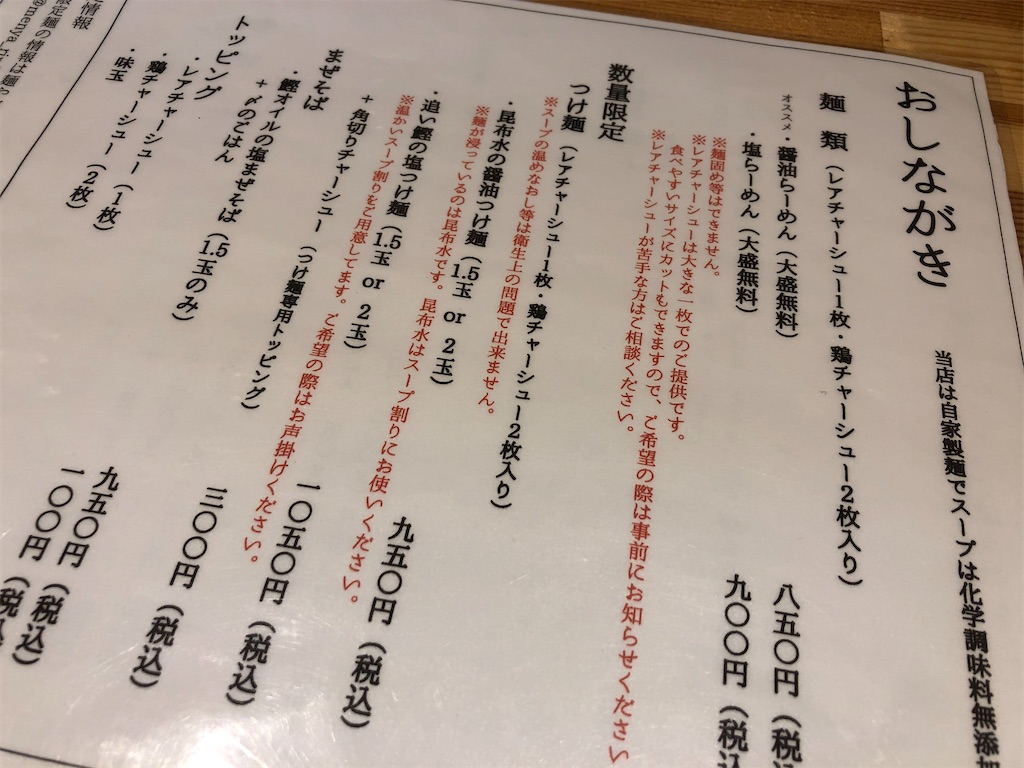 おしながき
当店は自家製麺でスープは化学調味料無添加
麺 類 (レアチャーシュー1枚・鶏チャーシュー2枚入り)
オススメ・醤油らーめん (大盛無料) 八五〇円 (税込
・塩らーめん (大盛無料) 九〇〇円 (税込
※麺固め等はできません。
※レアチャーシューは大きな一枚でのご提供です。
食べやすいサイズにカットもできますので、ご希望の際は事前にお知らせください
※レアチャーシューが苦手な方はご相談ください。
数量限定
つけ麺 (レアチャーシュー1枚・鶏チャーシュー2枚入り)
※スープの温めなおし等は衛生上の問題で出来ません。
・昆布水の醤油つけ麺 (1.5玉 or 2玉) 九五〇円 (税込)
※麺が浸っているのは昆布水です。昆布水はスープ割りにお使いください。
・追い鰹の塩つけ麺 (1.5玉 or 2玉) 一〇五〇円 (税込)
※温かいスープ割りをご用意してます。ご希望の際はお声掛けください。
+ 角切りチャーシュー (つけ麺専用トッピング) 三〇〇円 (税込)
まぜそば
・鰹オイルの塩まぜそば (1.5玉のみ) 九五〇円 (税込)
+ 〆のごはん 一〇〇円 (税込)
トッピング
・レアチャーシュー (1枚)
・鶏チャーシュー (2枚)
・味玉
情報
定麺の情報は麺や
@menya_